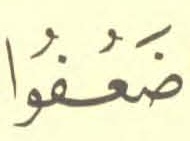 ضَعُفُوا